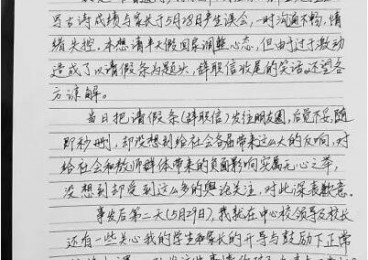 写古诗成绩与家长于5月28日产生误会,一时沟通不畅,情
绪失控。本想请半天假回家调整心态,但由于过于激动
造成了以请假条为题头,辞职信收尾的笑话,还望各
方谅解。
当日把请假条(辞职信)发往朋友圈,后觉不妥,随
即秒删,却没想到给社会各届带来这么大的反响,对
给社会和教师群体带来的负面影响实属无心之举,
没想到却受到这么多的舆论关注,对此深表歉意。
事发后第二天(5月29日),我就在中心校领导及校长
还有一些关心我的学生和家长的开导与鼓励下正常